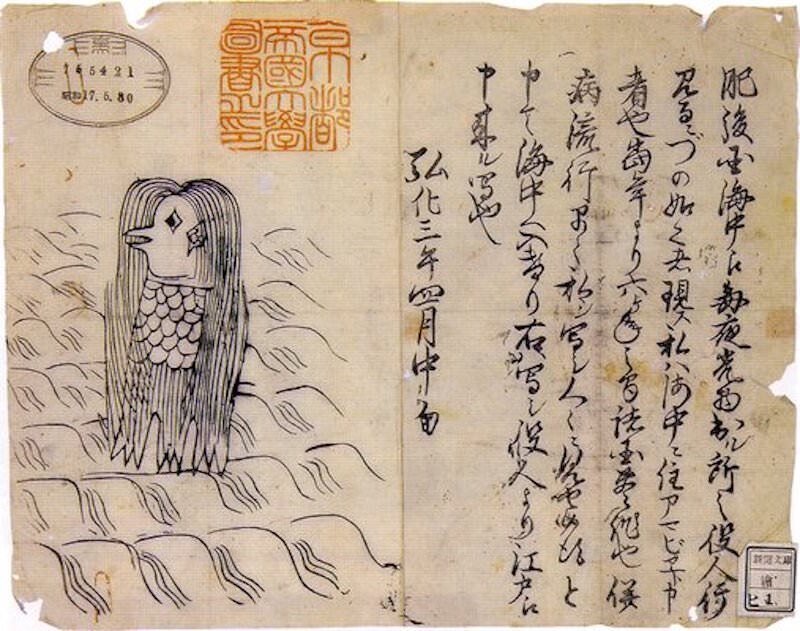 肥後国海中え毎夜光物出ル所之役人行
見るニづの如く者現ス私ハ海中ニ住アマビヱト申
者也當年より六ヶ年之間諸国豊作也併
病流行早々私シ写シ人々ニ見せ候得と
申て海中へ入けり右写シ役人より江戸え
申来ル写也
弘化三年四月中旬
京都
帝國大學
圖書之印
昭和17.5.30
新聞文庫
繪
ヒ